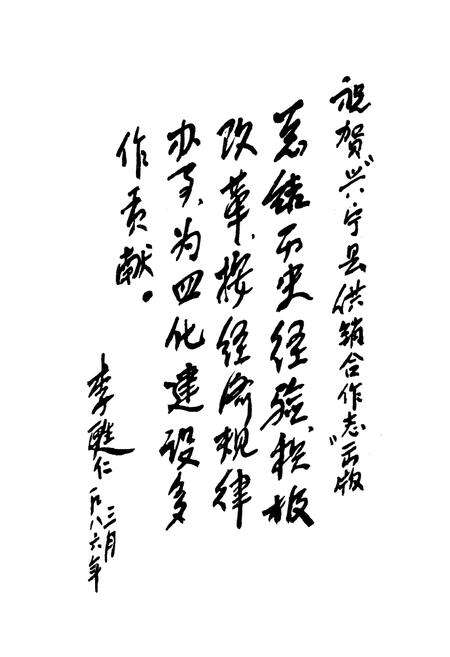 祝贺"兴宁县供销合作志"出版
总结历史经验，积极
改革，按经济规律
办事，为四化建设多
作贡献。
李甦仁
一九八六年
三月